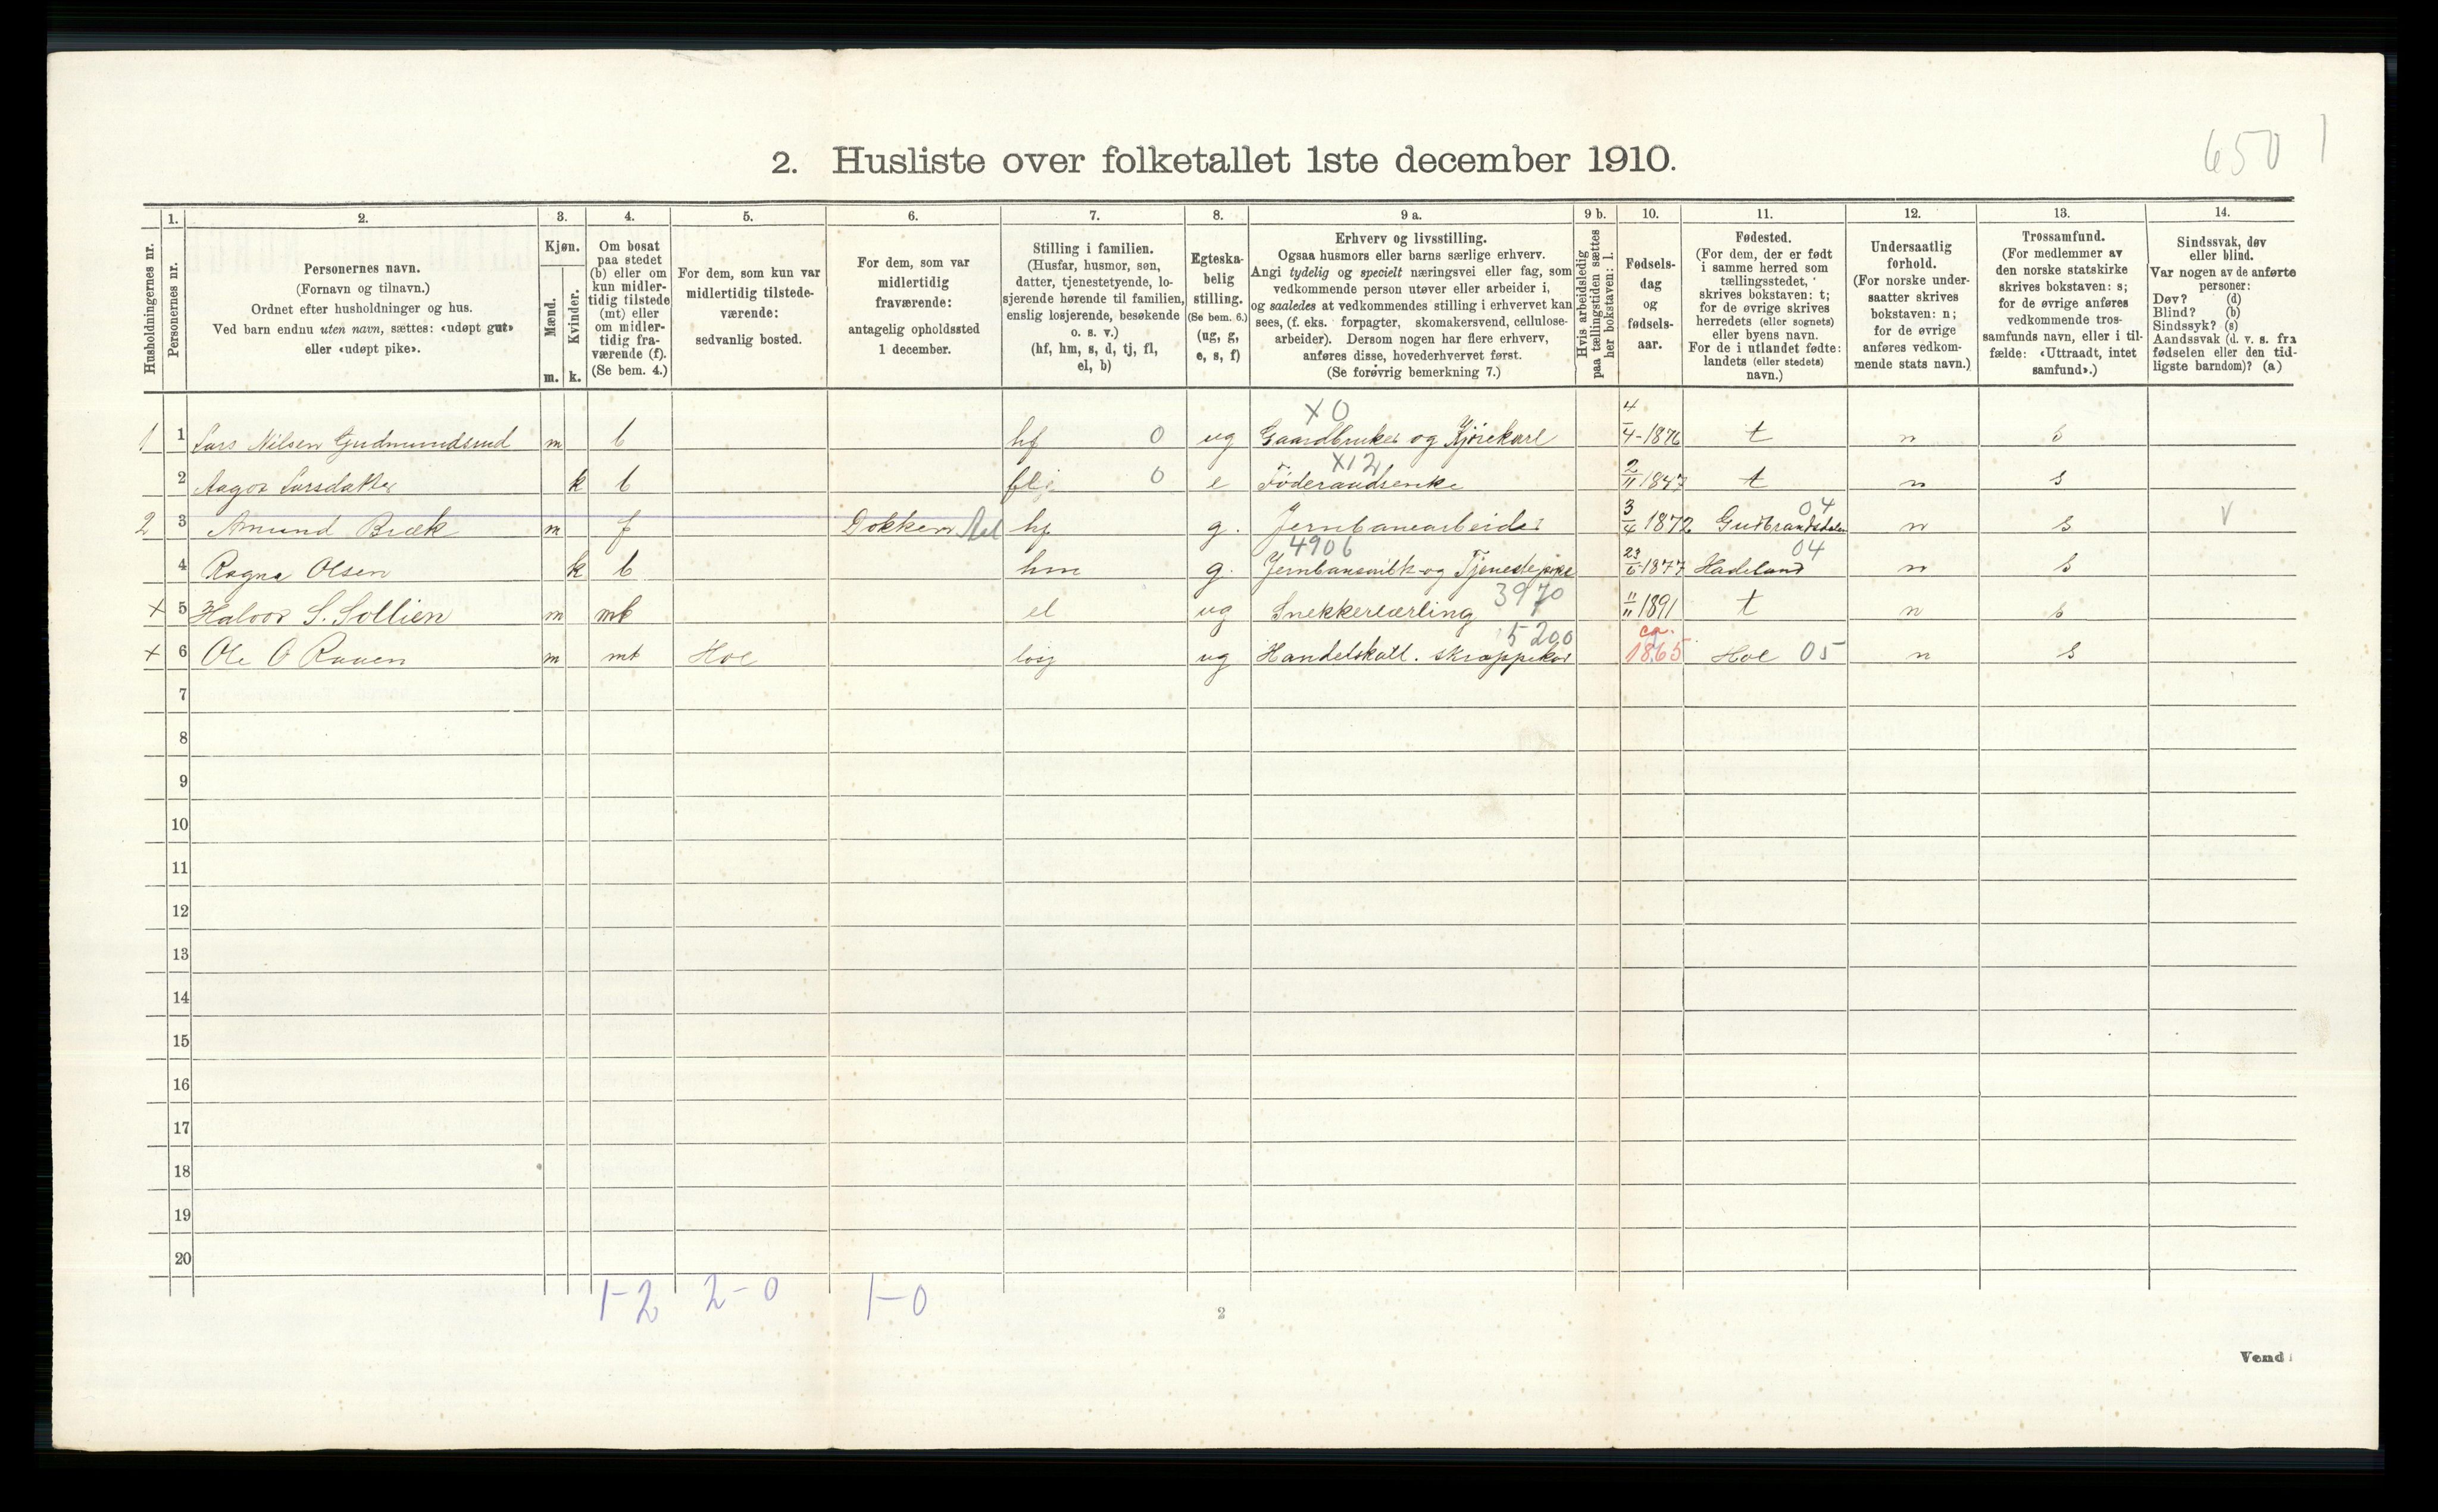 650 1
2. Husliste over folketallet 1ste december 1910.
Husholdningernes nr.
1. Personernes nr.
2. Personernes navn.
(Fornavn og tilnavn.)
Ordnet efter husholdninger og hus.
Ved barn endnu uten navn, sættes: «udøpt gut»
eller «udøpt pike».
3. Kjøn.
Mænd. m.
Kvinder. k.
4. Om bosat
paa stedet
(b) eller om
kun midler-
tidig tilstede
(mt) eller
om midler-
tidig fra-
værende (f).
(Se bem. 4.)
5. For dem, som kun var
midlertidig tilstede-
værende:
sedvanlig bosted.
6. For dem, som var
midlertidig
fraværende:
antagelig opholdssted
1 december.
7. Stilling i familien.
(Husfar, husmor, søn,
datter, tjenestetyende, lo-
sjerende hørende til familien,
enslig losjerende, besøkende
o. s. v.)
(hf, hm, s, d, tj, fl,
el, b)
8. Egteska-
belig
stilling.
(Se bem. 6.)
(ug, g,
e, s, f)
9 a. Erhverv og livsstilling.
Ogsaa husmors eller barns særlige erhverv.
Angi tydelig og specielt næringsvei eller fag, som
vedkommende person utøver eller arbeider i,
og saaledes at vedkommendes stilling i erhvervet kan
sees, (f. eks. forpagter, skomakersvend, cellulose-
arbeider). Dersom nogen har flere erhverv,
anføres disse, hovederhvervet først.
(Se forøvrig bemerkning 7.)
9 b. Hvis arbeidsledig
paa tællingstiden sættes
her bokstaven: l.
10. Fødsels-
dag
og
fødsels-
aar.
11. Fødested.
(For dem, der er født
i samme herred som
tællingsstedet,
skrives bokstaven: t;
for de øvrige skrives
herredets (eller sognets)
eller byens navn.
For de i utlandet fødte:
landets (eller stedets)
navn.)
12. Undersaatlig
forhold.
(For norske under-
saatter skrives
bokstaven: n;
for de øvrige
anføres vedkom-
mende stats navn.)
13. Trossamfund.
(For medlemmer av
den norske statskirke
skrives bokstaven: s;
for de øvrige anføres
vedkommende tros-
samfunds navn, eller i til-
fælde: «Uttraadt, intet
samfund».)
14. Sindssvak, døv
eller blind.
Var nogen av de anførte
personer:
Døv? (d)
Blind? (b)
Sindssyk? (s)
Aandssvak (d. v. s. fra
fødselen eller den tid-
ligste barndom)? (a)
X 0
1 1 Lars Nilsen Gudmundsrud m b hf 0 ug Gaardbruker og Kjørekarl 4/4-1876 t n s
X12
2 Aagot Larsdatter k b 0 e Föderaadsenke 2/11 1847 t n s
04
2 3 Amund Bræk m f Dokken Aal hf g. Jernbanearbeider 3/4 1872 Gudbrandsdalen n s V
4906 04
4 Ragna Olsen k b hm g. Tjenestepike 23/6 1877 Hadeland n s
3970
X 5 Halvor S. Sollien m mt el ug Snekkerlærling 11/11 1891 t n s
5200 ca.
X 6 Ole O Rauen m mt Hol losj ug Handelskall. skrappekar 1865 Hol 05 n s
7
8
9
10
11
12
13
14
15
16
17
18
19
20
1-2 2-0 1-0
2
Vend